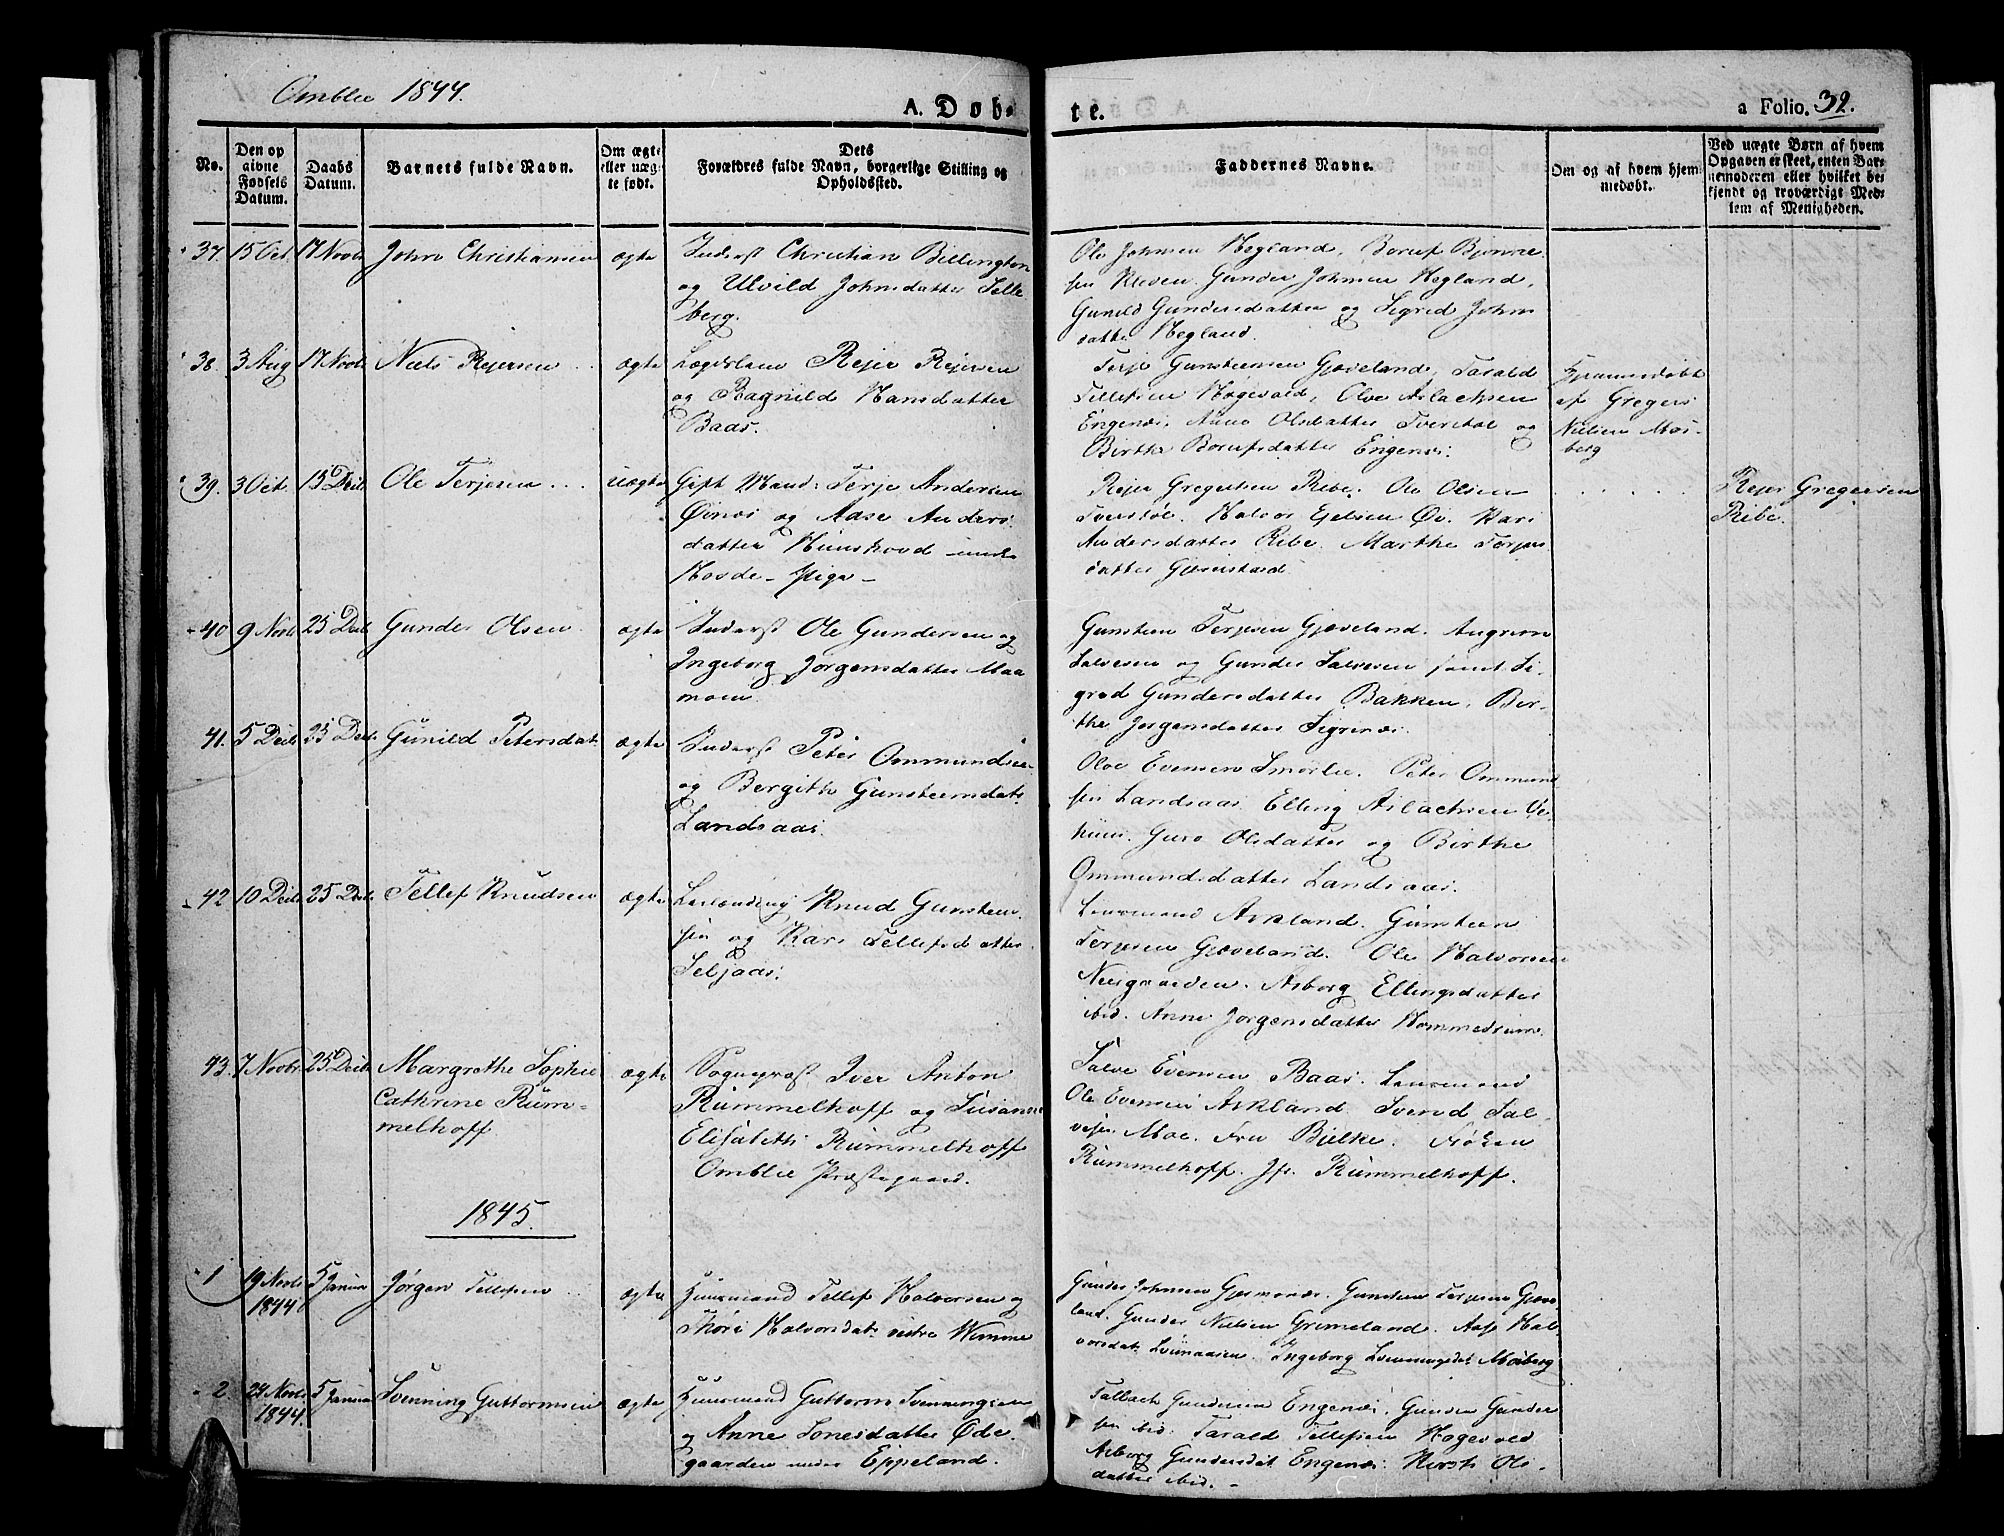 Omblie 1844.
A. Døb-
te.
a Folio. 32.
No.
Den op
givne
Fødsels
Datum.
Daabs
Datum.
Barnets fulde Navn.
Om ægte
eller uæg-
te født.
Dets
Forældres fulde Navn, borgerlige Stilling og
Opholdssted.
Faddernes Navne.
Om og af hvem hjem-
medøbt.
Ved uægte Børn af hvem
Opgaven er skeet, enten Bar-
nemoderen eller hvilket be-
kjendt og troværdigt Med-
lem af Menigheden.
37. 15 Oct. 17 Novb. John Christiansen ægte Inderst Christian Billington
og Ulvild Johnsdatter Telle-
berg.
Ole Johnsen Hegland, Borup Bjønne-
sen Kleven Gunder Johnsen Hegland,
Gunild Gundersdatter og Sigrid Johns
datter Hegland.
38. 3 Aug 17 Novb. Niels Rejersen ægte Lægdslem Rejer Rejersen
og Ragnild Hansdatter
Baas.
Terje Gunsteensen Gjøveland, Tarald
Tellefsen Hogevold, Olve Aslachsen
Engenæs, Anne Olsdatter Tverstøl og
Birthe Borupsdatter Engenæs.
Hjemmedøbt
af Gregers
Nielsen Mos-
berg
39. 3 Oct. 15 Decb. Ole Terjesen uægte Gift Mand: Terje Andersen
Øinæs og Aase Anders-
datter Hunshovd under
Hovde - Pige -
Rejer Gregersen Ribe. Ole Olsen
Tverstøl. Halvor Ejelsen Øi. Kari
Andersdatter Ribe. Marthe Terjes
datter Gjerustad.
Rejer Gregersen
Ribe.
40 9 Novb. 25 Decb. Gunder Olsen ægte Inderst Ole Gundersen og
Ingeborg Jørgensdatter Maa
moen.
Gunsteen Terjesen Gjøveland. Augrim
Salvesen og Gunder Salvesen samt Si-
grid Gundersdatter Bakken, Bir-
the Jørgensdatter Sigrinæs.
41. 5 Decb. 25 Decb. Gunild Petersdat. ægte Inderst Peter Ommundsen
og Bergithe Gunsteensdat.
Landsaas.
Olve Evensen Smørlie. Peter Ommund
sen Landsaas. Elling Aslachsen Ve-
huus. Guro Olsdatter og Birthe
Ommundsdatter Landsaas.
42 10 Decb. 25 Decb. Tellef Knudsen ægte Leilænding Knud Gunsteen-
sen og Kari Tellefsdatter
Seljaas.
Lensmand Askland. Gunsteen
Terjesen Gjøveland. Ole Halvorsen
Neergaarden. Asborg Ellingsdatter
ibid. Anne Jørgensdatter Hommedrum.
43. 7 Novbr. 25 Decb. Margrethe Sophie
Cathrine Rum-
melhoff
ægte Sognepræst Iver Anton
Rummelhoff og Susanne
Elisabeth Rummelhoff
Omblie Præstegaard.
Salve Evensen Baas. Lensmand
Ole Evensen Askland. Svend Sal-
vesen Moe. Fru Bielke. Frøken
Rummelhoff. Jfr. Rummelhoff.
1845.
1 19 Novb. 5 Januar Jørgen Tellefsen ægte Huusmand Tellef Halvorsen og
1844
Thore Halvorsdat. vestre Wimme
Gunder Johnsen Gjermonæs. Gunsteen Terjesen Gjøve-
land. Gunder Nielsen Grimeland. Aase Hal-
vorsdat. Ingeborg Svenningsdat. Mosberg
2 24 Novb. 5 Januar Svenning Guttormsen ægte Huusmand Guttorm Svenningsen
1844.
og Anne Tonesdatter Øde-
gaarden under Eppeland.
Talbach Gundersen Engenæs, Gunder Gunder
sen ibid. Tarald Tellefsen Hogevold
Asborg Gundersdat. Engenæs. Kirsti Ols-
datter ibid. -